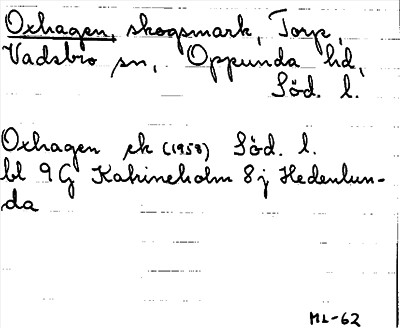 Oxhagen, skogsmark, Torp,
Vadsbro sn, Oppunda hd,
Söd. l.
Oxhagen ek (1958) Söd. l.
bl 9G Katrineholm 8j Hedenlun-
da
ML-62